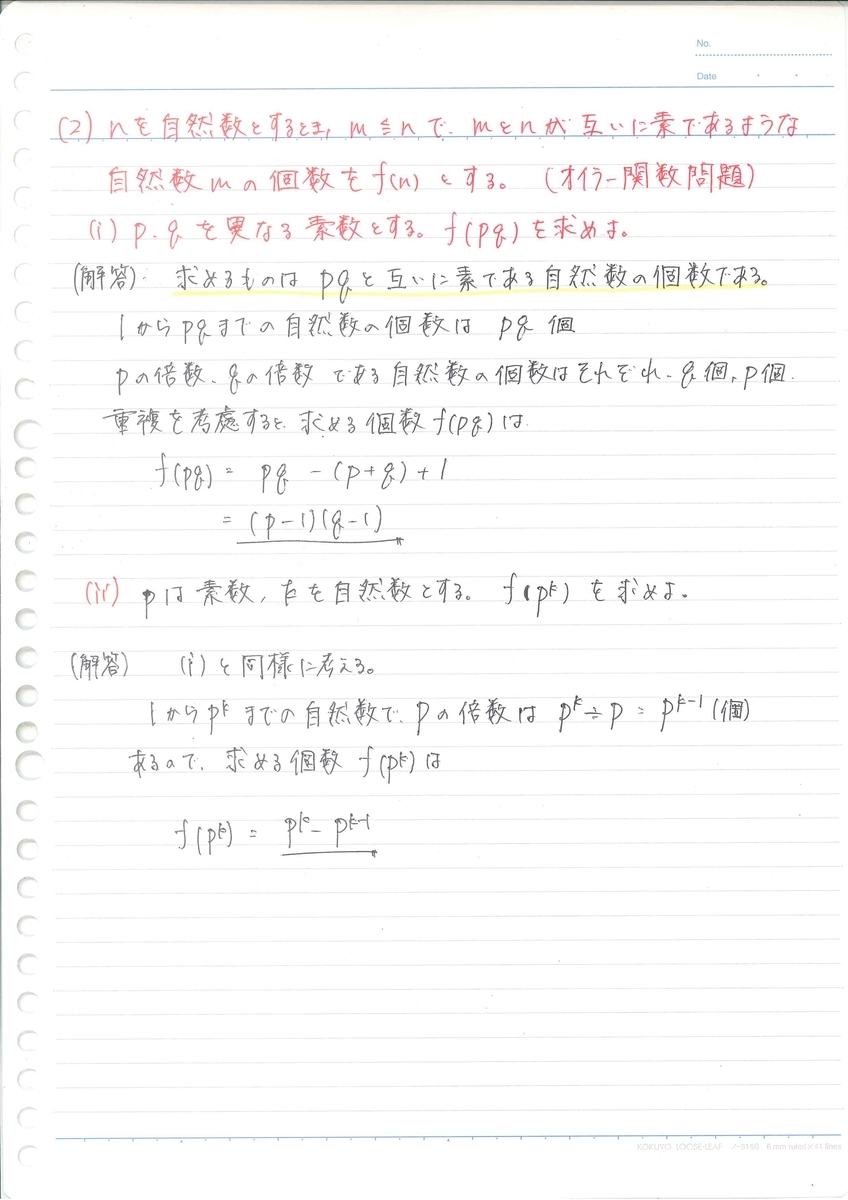 No.
Date
(2) nを自然数とするとき, m≦nで、mとnが互いに素であるような
自然数mの個数をf(n)とする。 (オイラー関数問題)
(i) p.qを異なる素数とする。f(pq)を求めよ。
(解答). 求めるものはpqと互いに素である自然数の個数である。
1からpqまでの自然数の個数は pq 個
pの倍数、qの倍数 である自然数の個数はそれぞれ、q個, p個.
重複を考慮すると、求める個数 f(pq)は.
f(pq) = pq - (p+q)+1
= (p-1)(q-1)
(ii) pは素数, kを自然数とする。 f(p^k)を求めよ。
(解答) (i)と同様に考える。
1からp^kまでの自然数で、pの倍数は p^k÷p = p^{k-1}(個)
あるので、求める個数 f(p^k)は
f(p^k) = p^k - p^{k-1}
KOKUYO LOOSE-LEAF ノ-S15B 6 mm ruled×41 lines